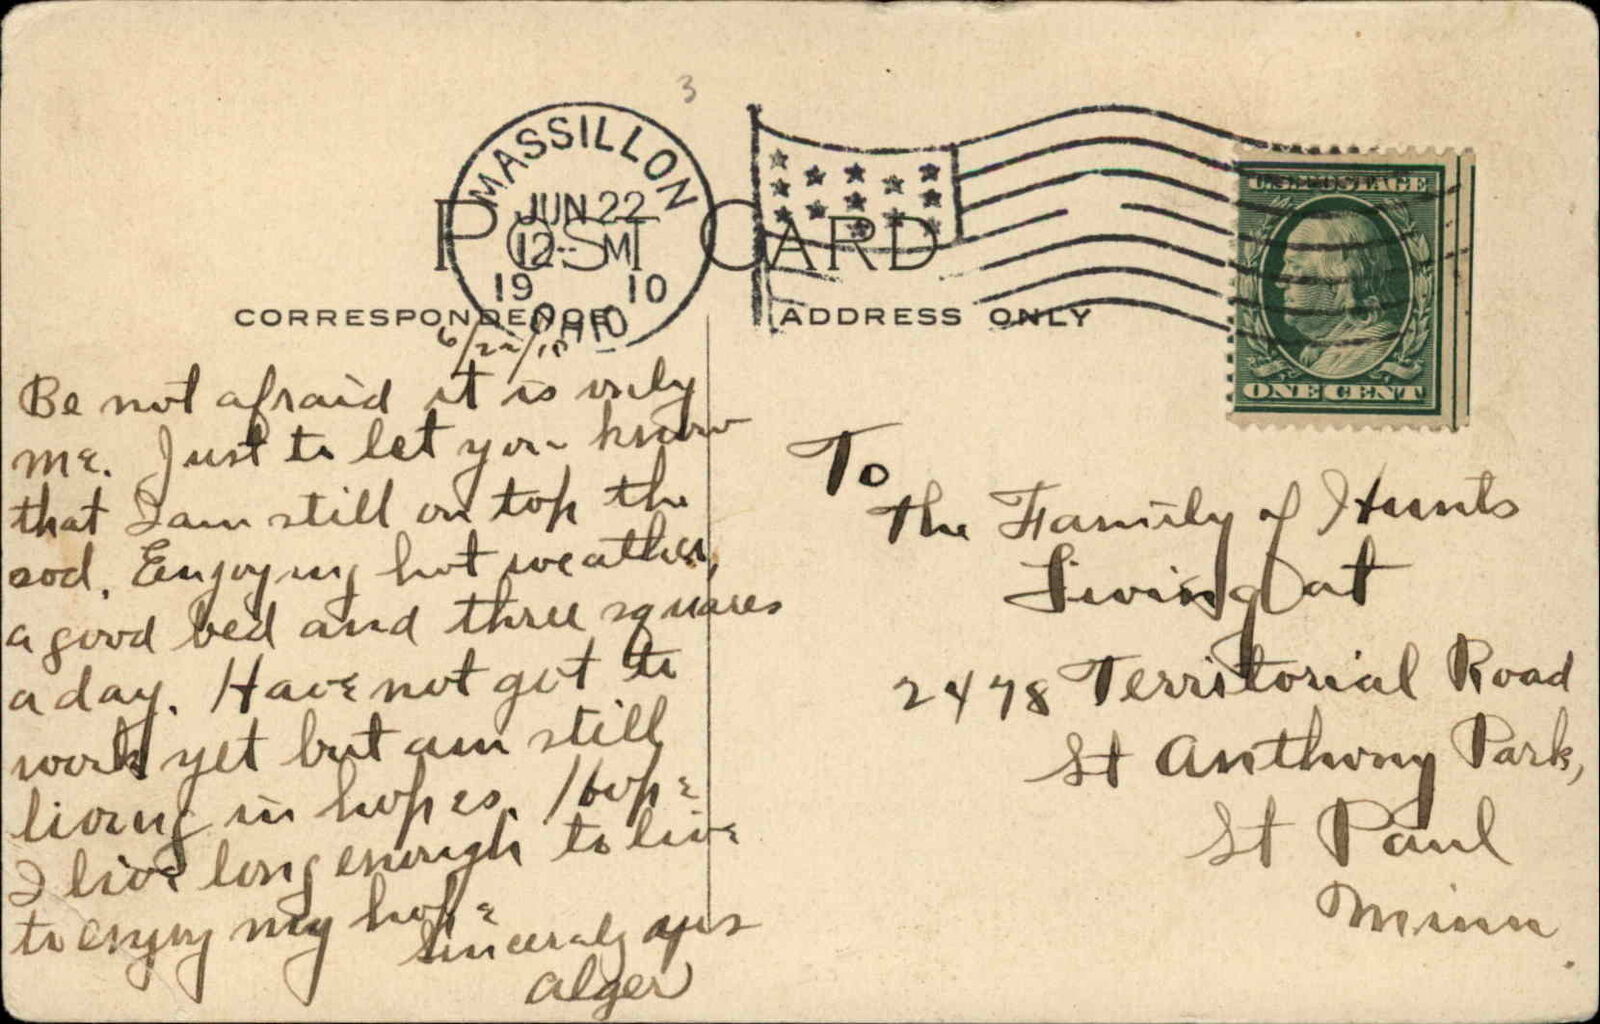 3
MASSILLON
JUN 22
12-M
19 10
OHIO
POST CARD
CORRESPONDENCE
ADDRESS ONLY
U.S. POSTAGE
ONE CENT
6/22/10
Be not afraid it is only
me. Just to let you know
that I am still on top the
sod. Enjoying hot weather,
a good bed and three squares
a day. Have not got to
work yet but am still
living in hopes. Hope
I live long enough to live
to enjoy my hope
Sincerely yours
Alger
To
The Family of Hunts
Living at
2478 Territorial Road
St Anthony Park,
St Paul
Minn